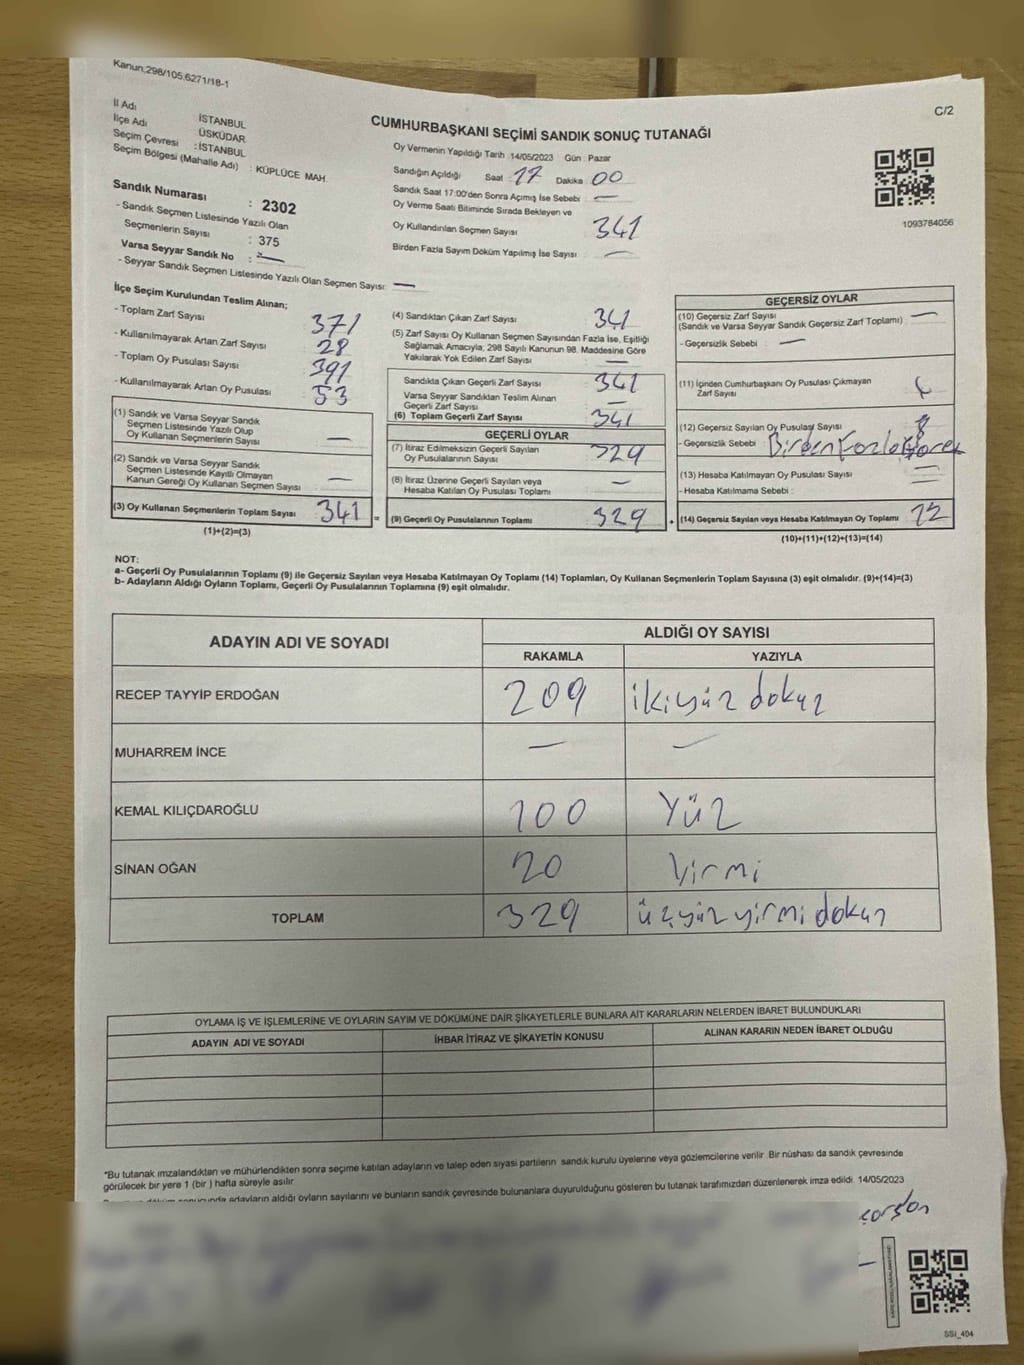 Kanun:298/105,6271/18-1
C/2
İl Adı İSTANBUL
İlçe Adı ÜSKÜDAR
Seçim Çevresi : İSTANBUL
Seçim Bölgesi (Mahalle Adı) : KÜPLÜCE MAH.
Sandık Numarası : 2302
- Sandık Seçmen Listesinde Yazılı Olan
Seçmenlerin Sayısı : 375
Varsa Seyyar Sandık No : —
- Seyyar Sandık Seçmen Listesinde Yazılı Olan Seçmen Sayısı : —
CUMHURBAŞKANI SEÇİMİ SANDIK SONUÇ TUTANAĞI
Oy Vermenin Yapıldığı Tarih 14/05/2023 Gün : Pazar
Sandığın Açıldığı Saat 17 Dakika 00
Sandık Saat 17:00'den Sonra Açımış İse Sebebi : —
Oy Verme Saati Bitiminde Sırada Bekleyen ve
Oy Kullandırılan Seçmen Sayısı 341
Birden Fazla Sayım Döküm Yapılmış İse Sayısı : —
1093784056
İlçe Seçim Kurulundan Teslim Alınan;
- Toplam Zarf Sayısı 371
- Kullanılmayarak Artan Zarf Sayısı 28
- Toplam Oy Pusulası Sayısı 391
- Kullanılmayarak Artan Oy Pusulası 53
(1) Sandık ve Varsa Seyyar Sandık
Seçmen Listesinde Yazılı Olup
Oy Kullanan Seçmenlerin Sayısı —
(2) Sandık ve Varsa Seyyar Sandık
Seçmen Listesinde Kayıtlı Olmayan
Kanun Gereği Oy Kullanan Seçmen Sayısı —
(3) Oy Kullanan Seçmenlerin Toplam Sayısı 341 =
(1)+(2)=(3)
(4) Sandıktan Çıkan Zarf Sayısı 341
(5) Zarf Sayısı Oy Kullanan Seçmen Sayısından Fazla İse, Eşitliği
Sağlamak Amacıyla, 298 Sayılı Kanunun 98. Maddesine Göre
Yakılarak Yok Edilen Zarf Sayısı —
Sandıkta Çıkan Geçerli Zarf Sayısı 341
Varsa Seyyar Sandıktan Teslim Alınan
Geçerli Zarf Sayısı —
(6) Toplam Geçerli Zarf Sayısı 341
GEÇERLİ OYLAR
(7) İtiraz Edilmeksizin Geçerli Sayılan
Oy Pusulalarının Sayısı 329
(8) İtiraz Üzerine Geçerli Sayılan veya
Hesaba Katılan Oy Pusulası Toplamı —
(9) Geçerli Oy Pusulalarının Toplamı 329 +
GEÇERSİZ OYLAR
(10) Geçersiz Zarf Sayısı
(Sandık ve Varsa Seyyar Sandık Geçersiz Zarf Toplamı) : —
- Geçersizlik Sebebi : —
(11) İçinden Cumhurbaşkanı Oy Pusulası Çıkmayan
Zarf Sayısı
(12) Geçersiz Sayılan Oy Pusulası Sayısı 8
- Geçersizlik Sebebi Birden Fazla
(13) Hesaba Katılmayan Oy Pusulası Sayısı —
- Hesaba Katılmama Sebebi : —
(14) Geçersiz Sayılan veya Hesaba Katılmayan Oy Toplamı 12
(10)+(11)+(12)+(13)=(14)
NOT:
a- Geçerli Oy Pusulalarının Toplamı (9) ile Geçersiz Sayılan veya Hesaba Katılmayan Oy Toplamı (14) Toplamları, Oy Kullanan Seçmenlerin Toplam Sayısına (3) eşit olmalıdır. (9)+(14)=(3)
b- Adayların Aldığı Oyların Toplamı, Geçerli Oy Pusulalarının Toplamına (9) eşit olmalıdır.
ADAYIN ADI VE SOYADI ALDIĞI OY SAYISI
RAKAMLA YAZIYLA
RECEP TAYYİP ERDOĞAN 209 ikiyüz dokuz
MUHARREM İNCE — —
KEMAL KILIÇDAROĞLU 100 Yüz
SİNAN OĞAN 20 Yirmi
TOPLAM 329 üçyüz yirmi dokuz
OYLAMA İŞ VE İŞLEMLERİNE VE OYLARIN SAYIM VE DÖKÜMÜNE DAİR ŞİKAYETLERLE BUNLARA AİT KARARLARIN NELERDEN İBARET BULUNDUKLARI
ADAYIN ADI VE SOYADI İHBAR İTİRAZ VE ŞİKAYETİN KONUSU ALINAN KARARIN NEDEN İBARET OLDUĞU
*Bu tutanak imzalandıktan ve mühürlendikten sonra seçime katılan adayların ve talep eden siyasi partilerin sandık kurulu üyelerine veya gözlemcilerine verilir. Bir nüshası da sandık çevresinde
görülecek bir yere 1 (bir) hafta süreyle asılır
adayların aldığı oyların sayılarını ve bunların sandık çevresinde bulunanlara duyurulduğunu gösteren bu tutanak tarafımızdan düzenlenerek imza edildi. 14/05/2023
SSİ_404